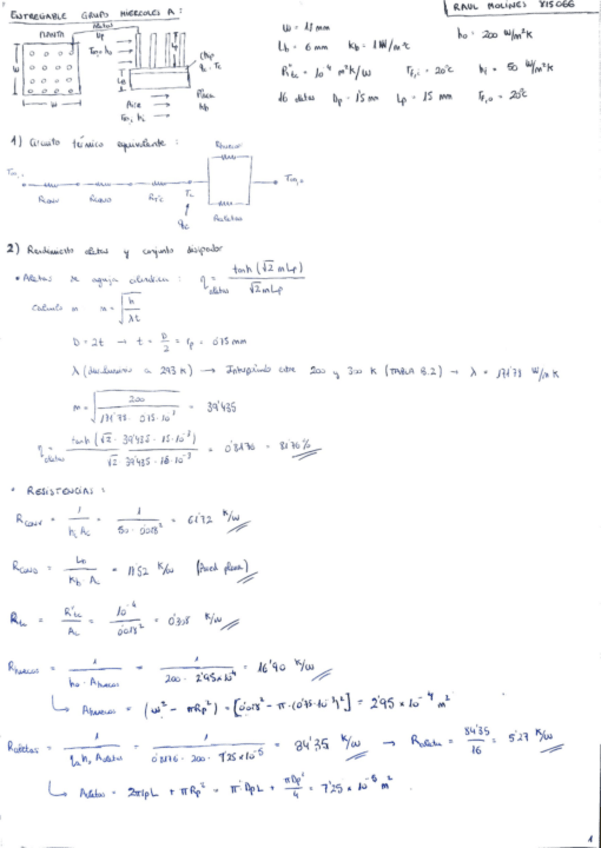 ENTREGABLE GRUPO MIÉRCOLES A:
RAUL MOLINES V15066
PLANTA
Aletas
Chip
qc, Tc
Placa
kb
Aire
W = 18 mm
ho = 200 W/m²K
Lb = 6 mm kb = 1 W/m·K
R''tc = 10⁻⁴ m²K/W T∞,i = 20°C hi = 50 W/m²K
16 aletas Dp = 1'5 mm Lp = 15 mm T∞,o = 20°C
1) Circuito térmico equivalente:
T∞,i Rconv Rcond Rtc Tc Rhuecos Raletas T∞,o
qc
2) Rendimiento aletas y conjunto disipador
• Aletas de aguja cilíndrica: η aletas = tanh(√2 mLp) / √2 mLp
Calculo m m = √(h / λt)
D = 2t → t = D/2 = rp = 0'75 mm
λ (duraluminio a 293 K) → Interpolando entre 200 y 300 K (TABLA 8.2) → λ = 171'73 W/m K
m = √(200 / 171'73 · 0'75·10⁻³) = 39'435
η aletas = tanh(√2 · 39'435 · 15·10⁻³) / √2 39'435 · 15·10⁻³ = 0'8176 = 81'76%
• RESISTENCIAS:
Rconv = 1 / hi Ac = 1 / 50 · 0'018² = 61'72 K/W
Rcond = Lb / Kb · A = 18'52 K/W (Pared plana)
Rtc = R''tc / Ac = 10⁻⁴ / 0'018² = 0'308 K/W
Rhuecos = 1 / ho · Ahuecos = 1 / 200 · 2'95×10⁻⁴ = 16'90 K/W
↳ Ahuecos = (W² - πRp²) = [0'018² - π·(0'75·10⁻³)²] = 2'95 × 10⁻⁴ m²
Raletas = 1 / η ho Aaletas = 1 / 0'8176 · 200 · 7'25×10⁻⁵ = 84'35 K/W → Raletas = 84'35 / 16 = 5'27 K/W
↳ Aaletas = 2πrpL + πRp² = π·DpL + πDp² / 4 = 7'25 × 10⁻⁵ m²
1